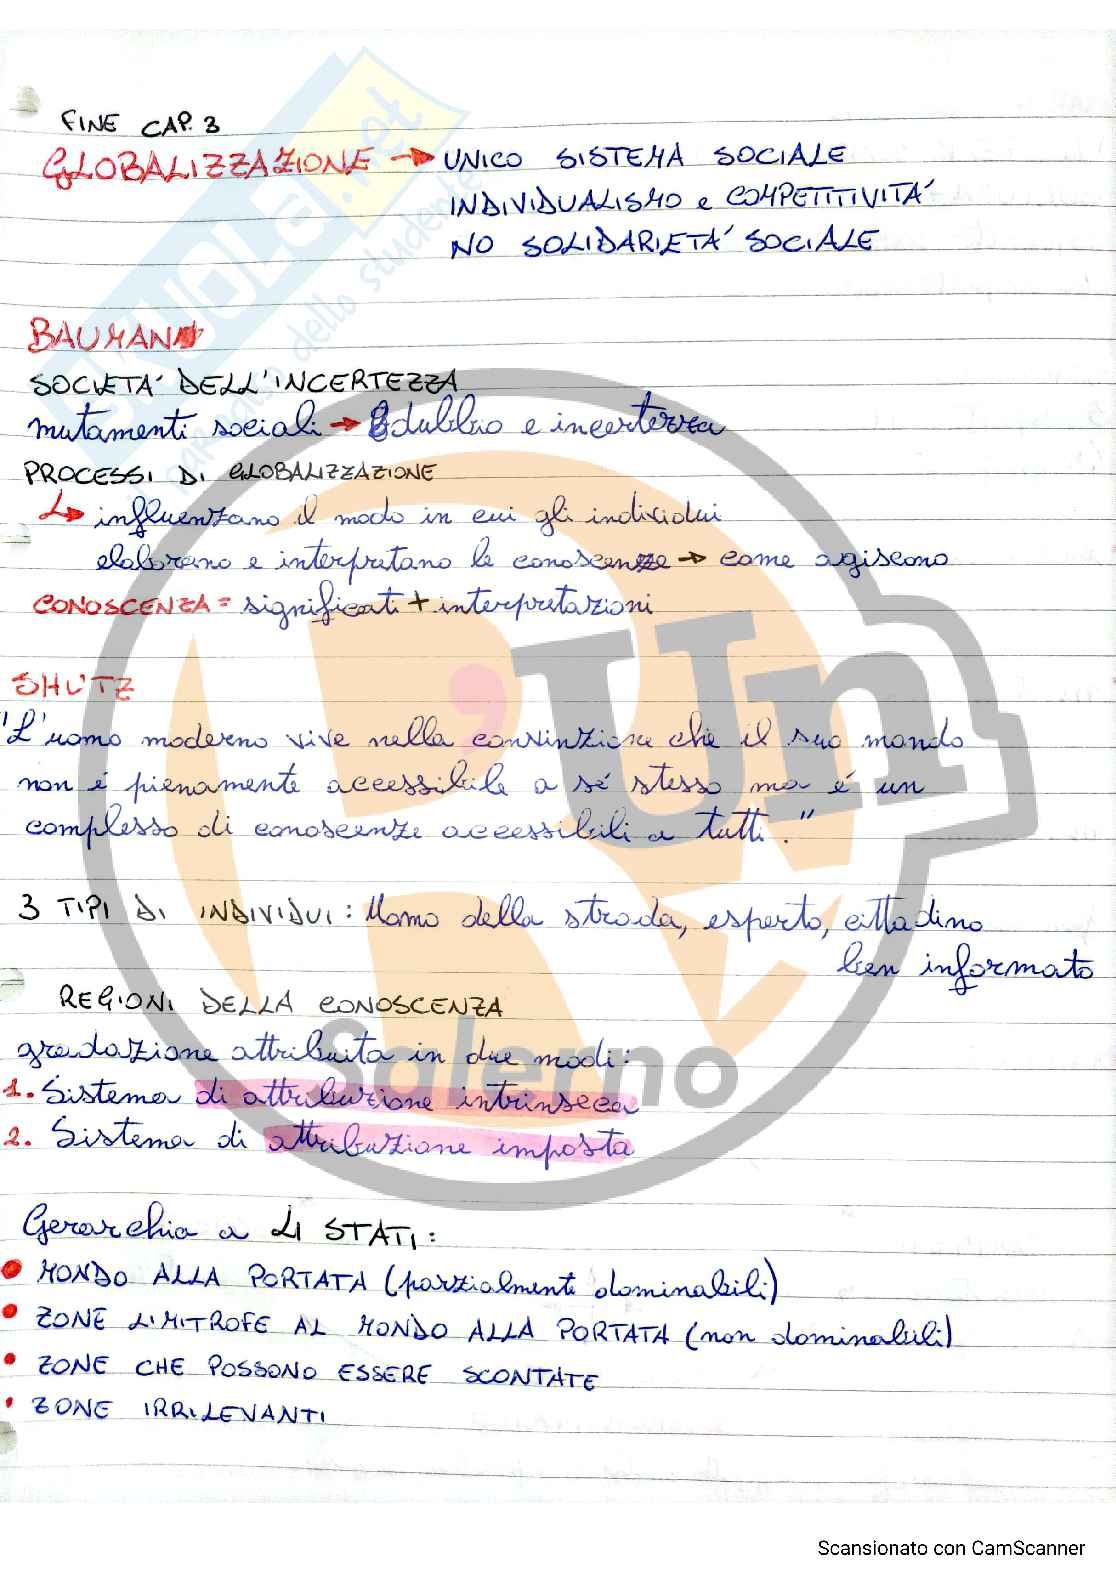 FINE CAP. 3
GLOBALIZZAZIONE → UNICO SISTEMA SOCIALE
INDIVIDUALISMO e COMPETITIVITÀ
NO SOLIDARIETÀ SOCIALE
BAUMAN
SOCIETÀ DELL'INCERTEZZA
mutamenti sociali → dubbio e incertezza
PROCESSI DI GLOBALIZZAZIONE
↳ influenzano il modo in cui gli individui
elaborano e interpretano le conoscenze → come agiscono
CONOSCENZA = significati + interpretazioni
SHUTZ
"L'uomo moderno vive nella convinzione che il suo mondo
non è pienamente accessibile a sé stesso ma è un
complesso di conoscenze accessibili a tutti."
3 TIPI DI INDIVIDUI: Uomo della strada, esperto, cittadino
ben informato
REGIONI DELLA CONOSCENZA
gradazione attribuita in due modi:
1. Sistema di attribuzione intrinseca
2. Sistema di attribuzione imposta
Gerarchia a 4 STATI:
• MONDO ALLA PORTATA (parzialmente dominabili)
• ZONE LIMITROFE AL MONDO ALLA PORTATA (non dominabili)
• ZONE CHE POSSONO ESSERE SCONTATE
• ZONE IRRILEVANTI
SKUOLA.net
paradiso dello studente
R'Un
Salerno
Scansionato con CamScanner